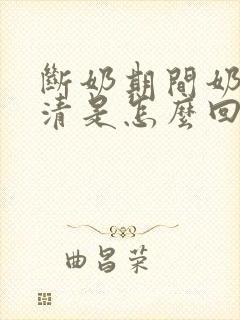 斷奶期間奶
清是怎麼回
曲昌荣